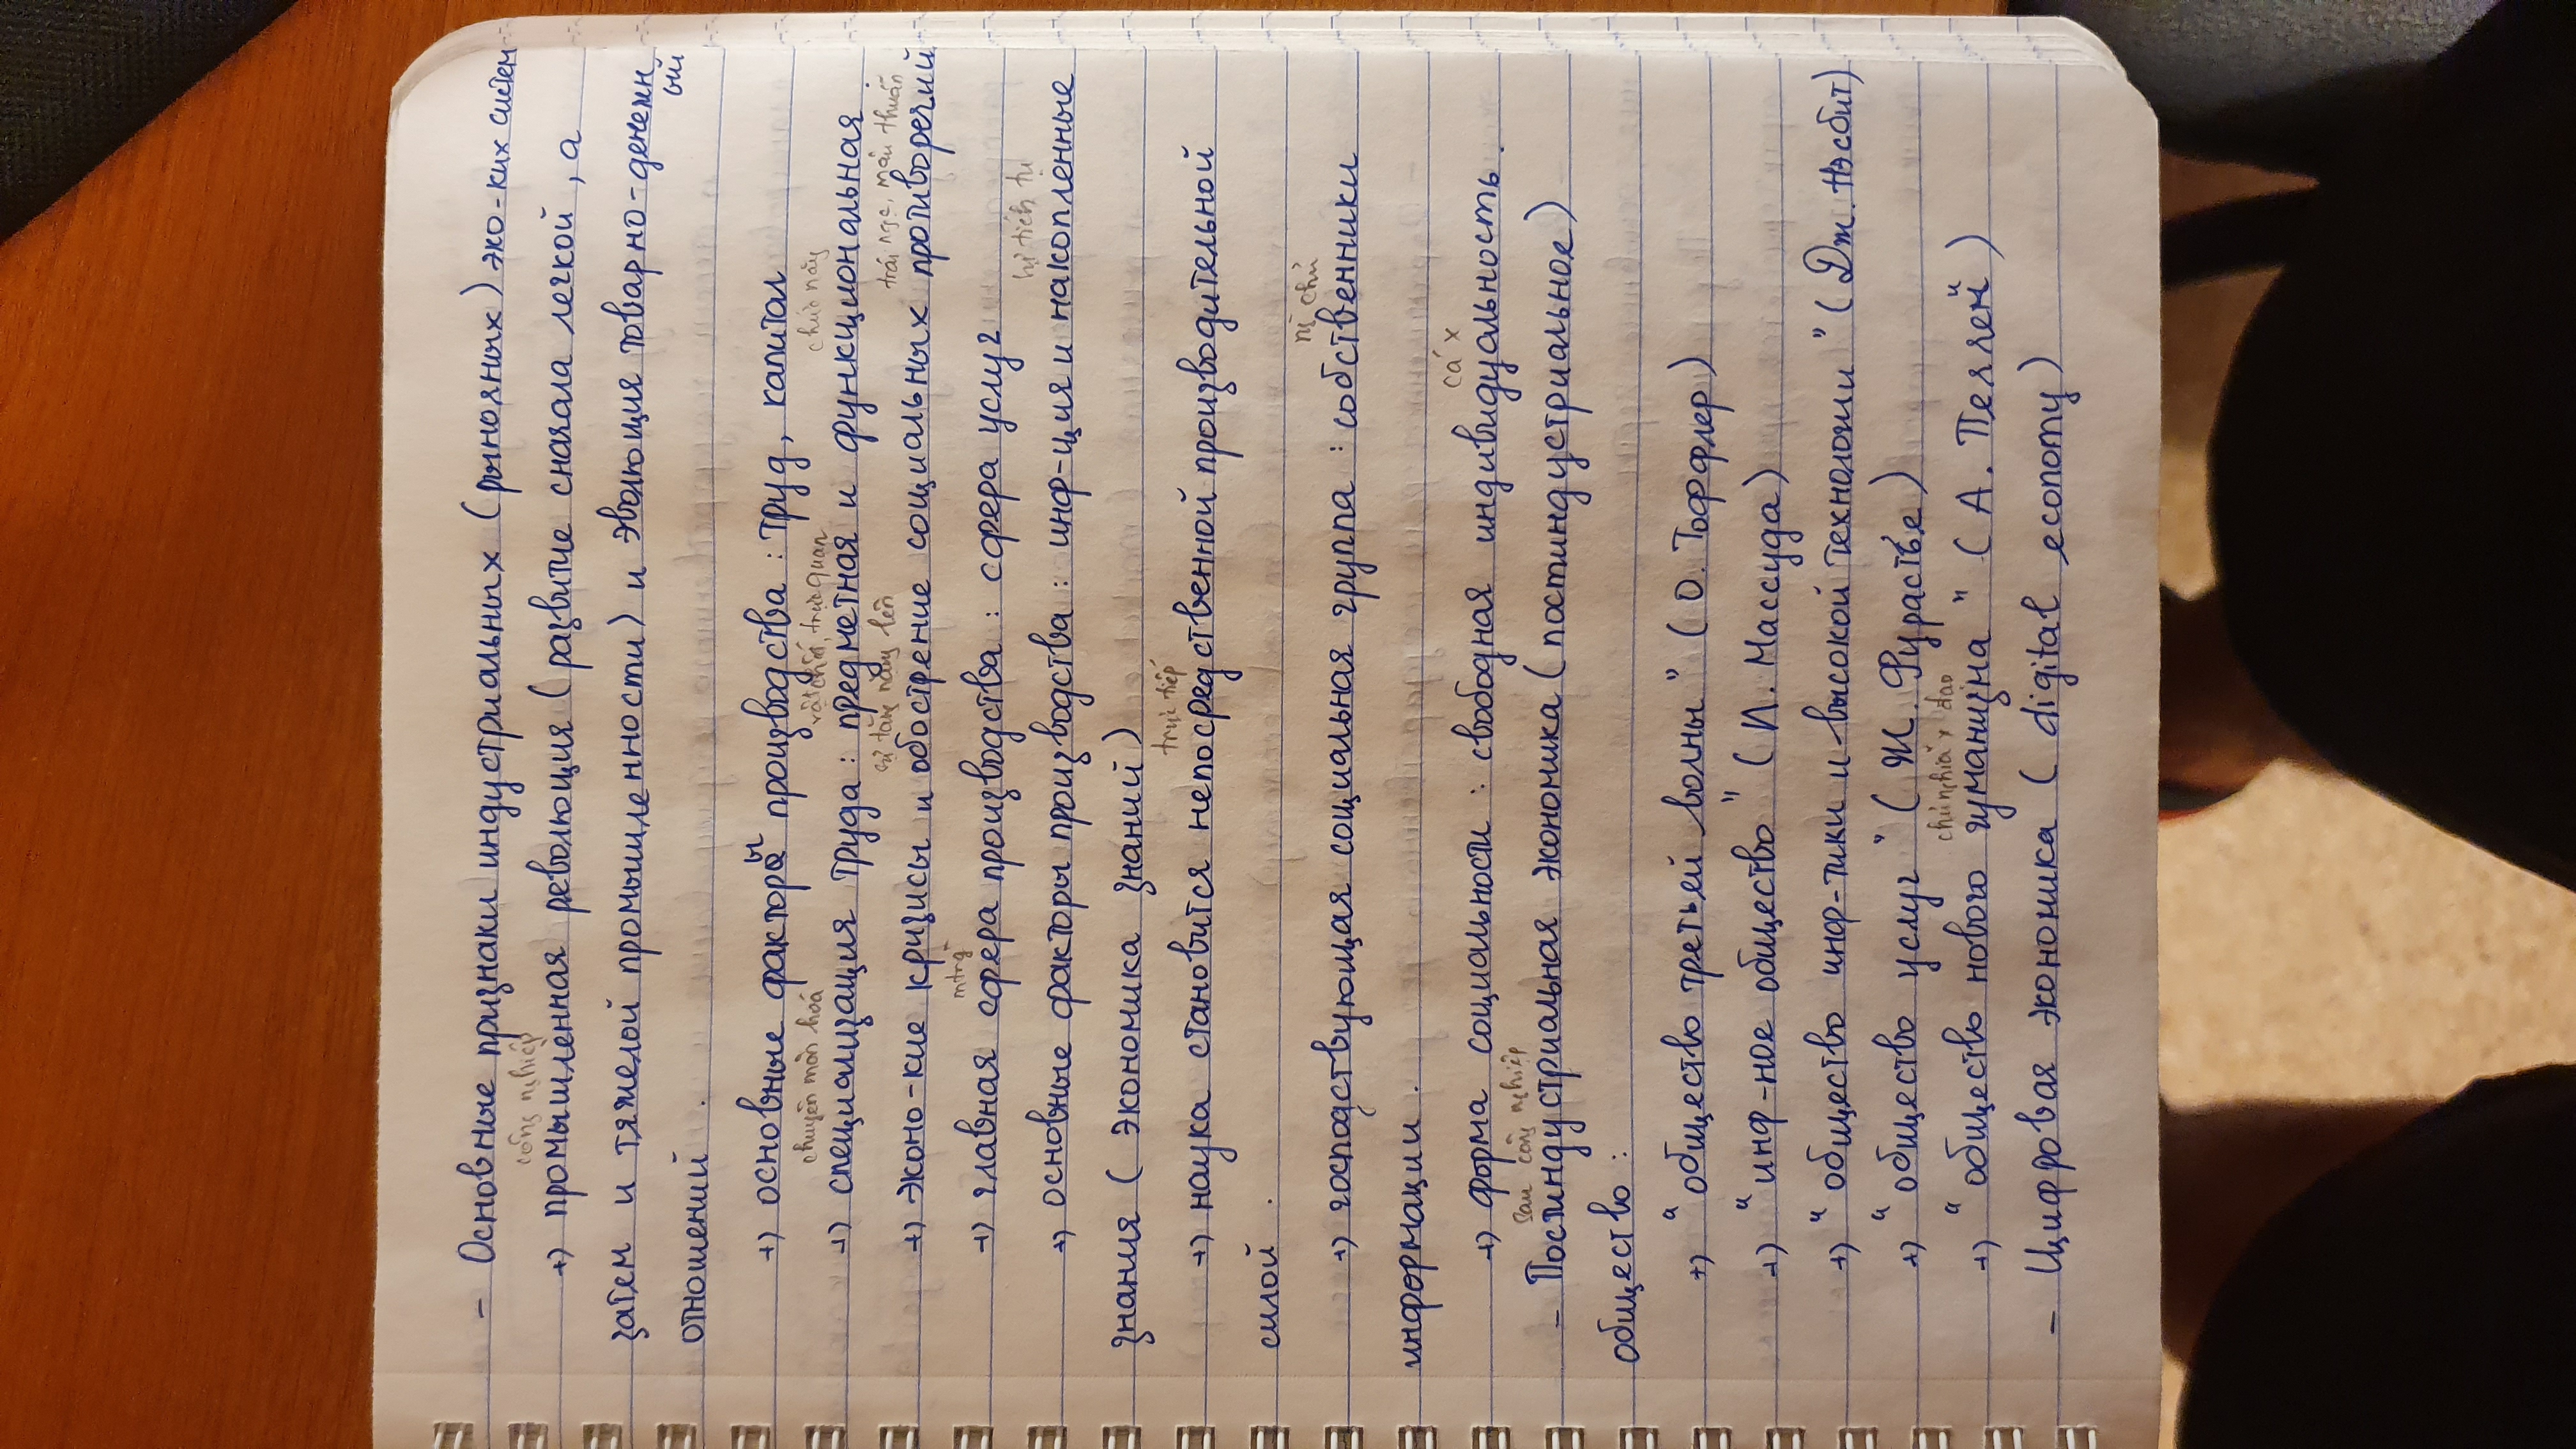 - Основные признаки индустриальных (рыночных) эко-ких систем
công nghiệp
+) промышленная революция (развитие сначала легкой, а
затем и тяжелой промышленности) и эволюция товарно-денежн
ый
отношений.
+) основные факторы производства: труд, капитал
chuyên môn hoá vật chất, trực quan chức năng
+) специализация труда: предметная и функциональная.
sự tăng nặng lên trái ngc, mâu thuẫn
+) эконо-кие кризисы и обострение социальных противоречий
mtrg
+) главная сфера производства: сфера услуг
sự tích tụ
+) основные факторы производства: инф-ция и накопленные
знания (экономика знаний)
trực tiếp
+) наука становится непосредственной производительной
силой.
ng chủ
+) господствующая социальная группа: собственники
информации.
cá x
+) форма социальности: свободная индивидуальность.
sau công nghiệp
- Постиндустриальная экономика (постиндустриальное)
общество:
+) "общество третьей волны" (О. Тоффлер)
+) "инф-ное общество" (И. Массуда)
+) "общество инф-тики и высокой технологии" (Дж. Нэсбит)
+) "общество услуг" (Ж. Фурастье)
chủ nghĩa x đạo
+) "общество нового гуманизма" (А. Печчеи)
- Цифровая экономика (digital economy)